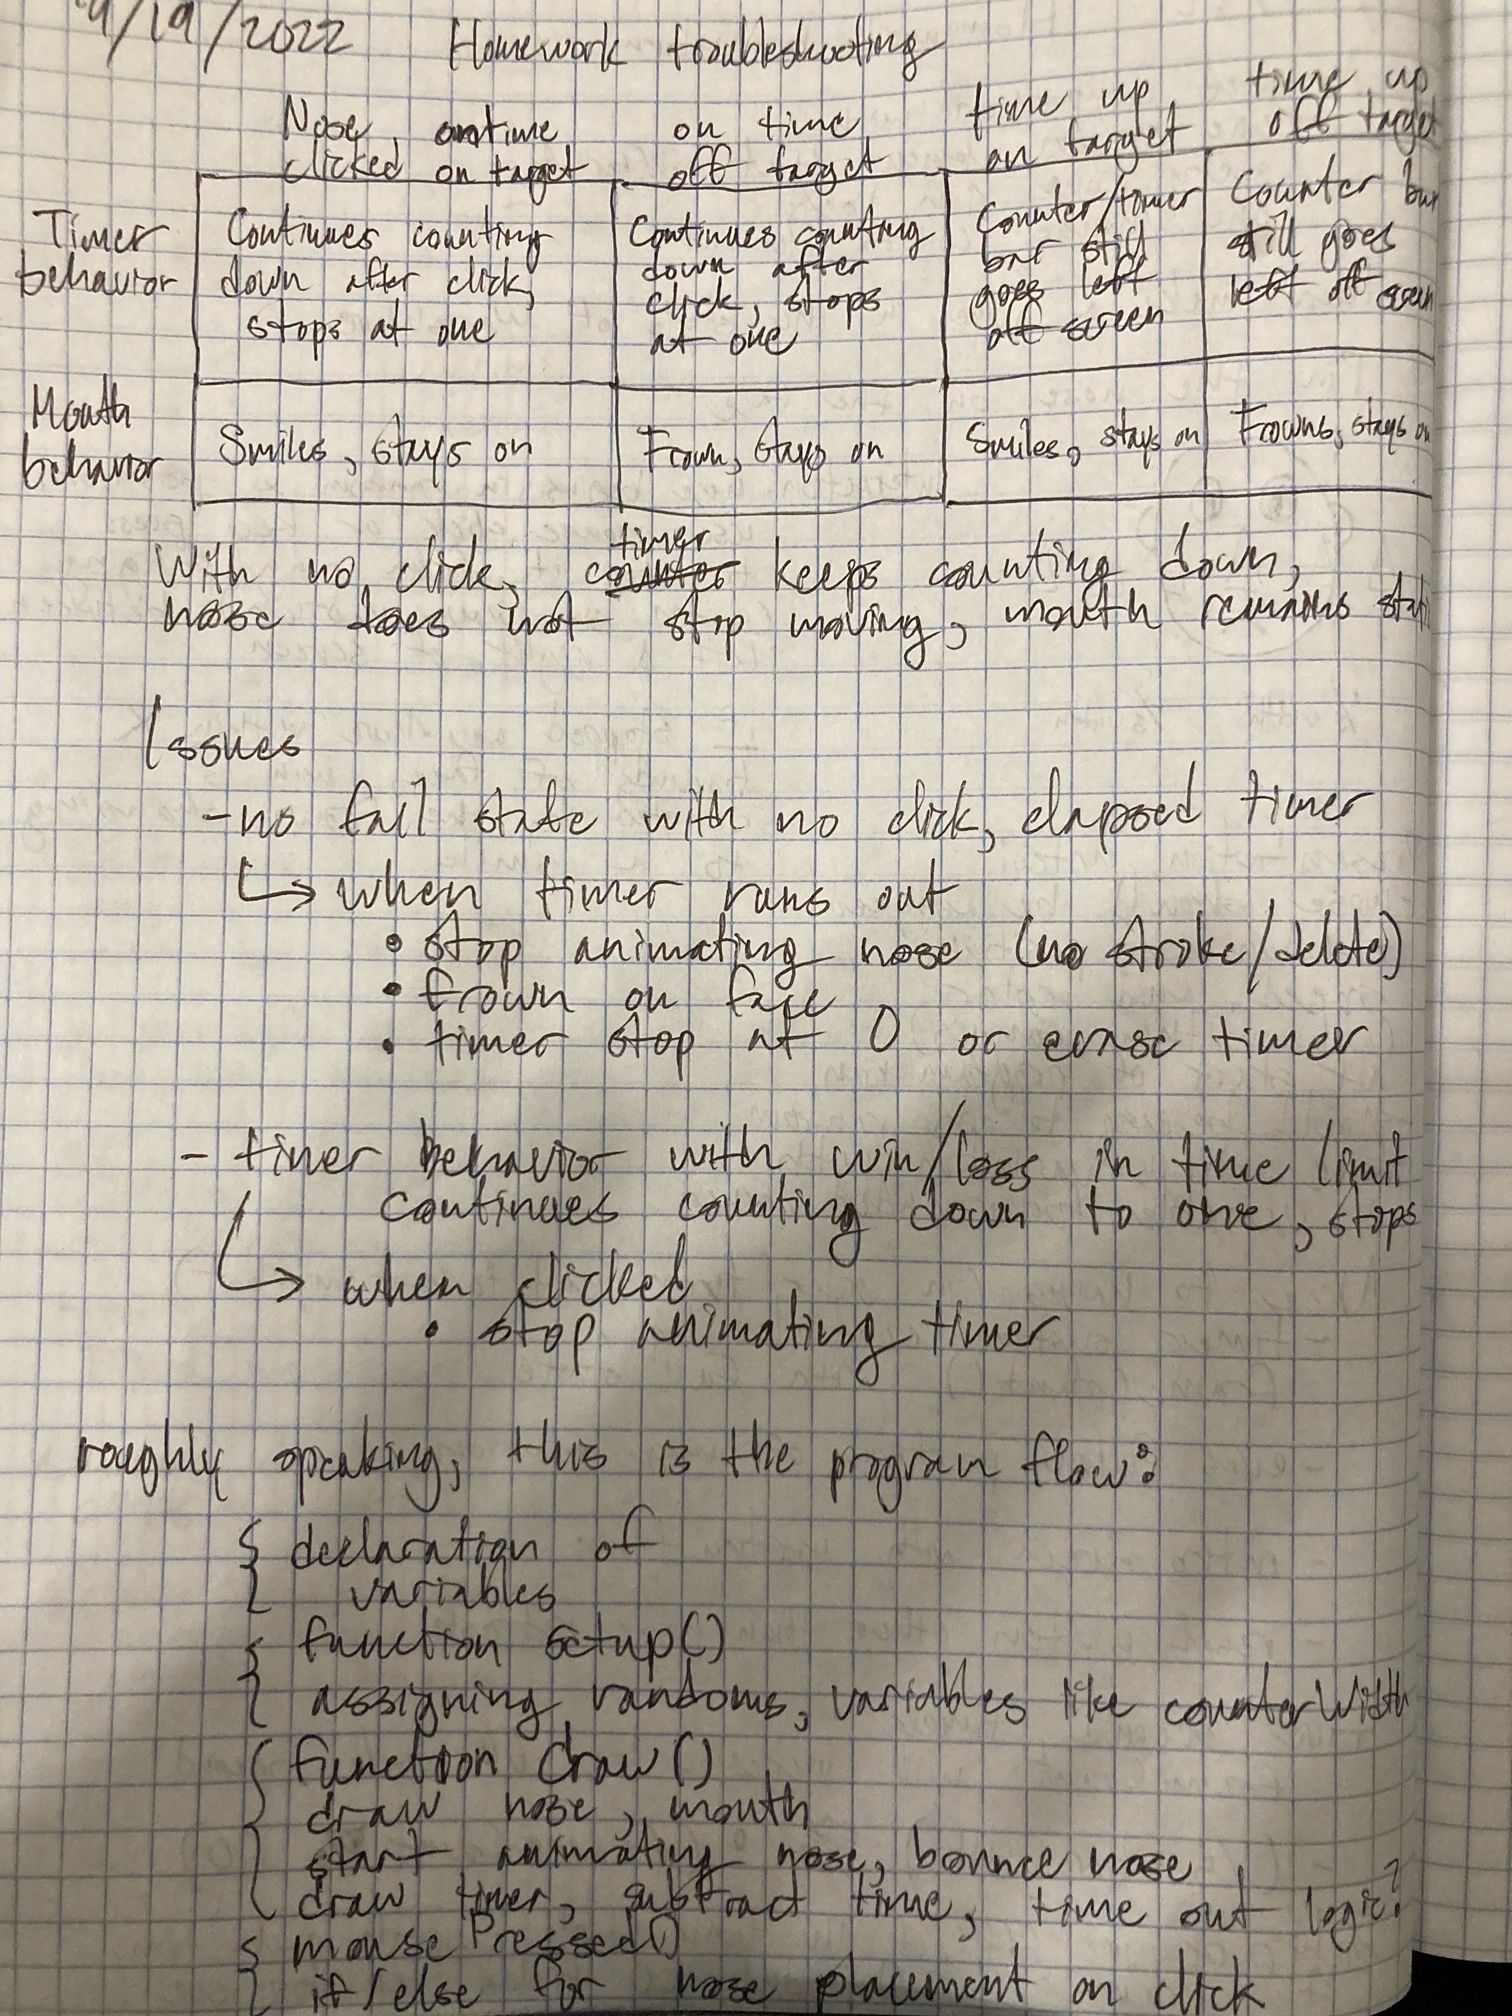 9/19/2022 Homework troubleshooting
Nose clicked
on time on target
on time off target
time up on target
time up off target
Timer behavior
Continues counting
down after click,
stops at one
Continues counting
down after
click, stops
at one
Counter/timer
bar still
goes left
off screen
Counter bar
still goes
left off screen
Mouth behavior
Smiles, stays on
Frown, stays on
Smiles, stays on
Frowns, stays on
With no click, counter timer keeps counting down,
nose does not stop moving, mouth remains
Issues
- no fail state with no click, elapsed timer
↳ when timer runs out
• stop animating nose (no stroke/delete)
• frown on face
• timer stop at 0 or erase timer
- timer behavior with win/loss in time limit
continues counting down to one, stops
↳ when clicked
• stop animating timer
roughly speaking, this is the program flow:
{ declaration of
variables
{ function setup()
assigning randoms, variables like counterWidth
{ function draw()
draw nose, mouth
start animating nose, bounce nose
draw timer, subtract time, time out logic?
{ mousePressed()
if/else for nose placement on click